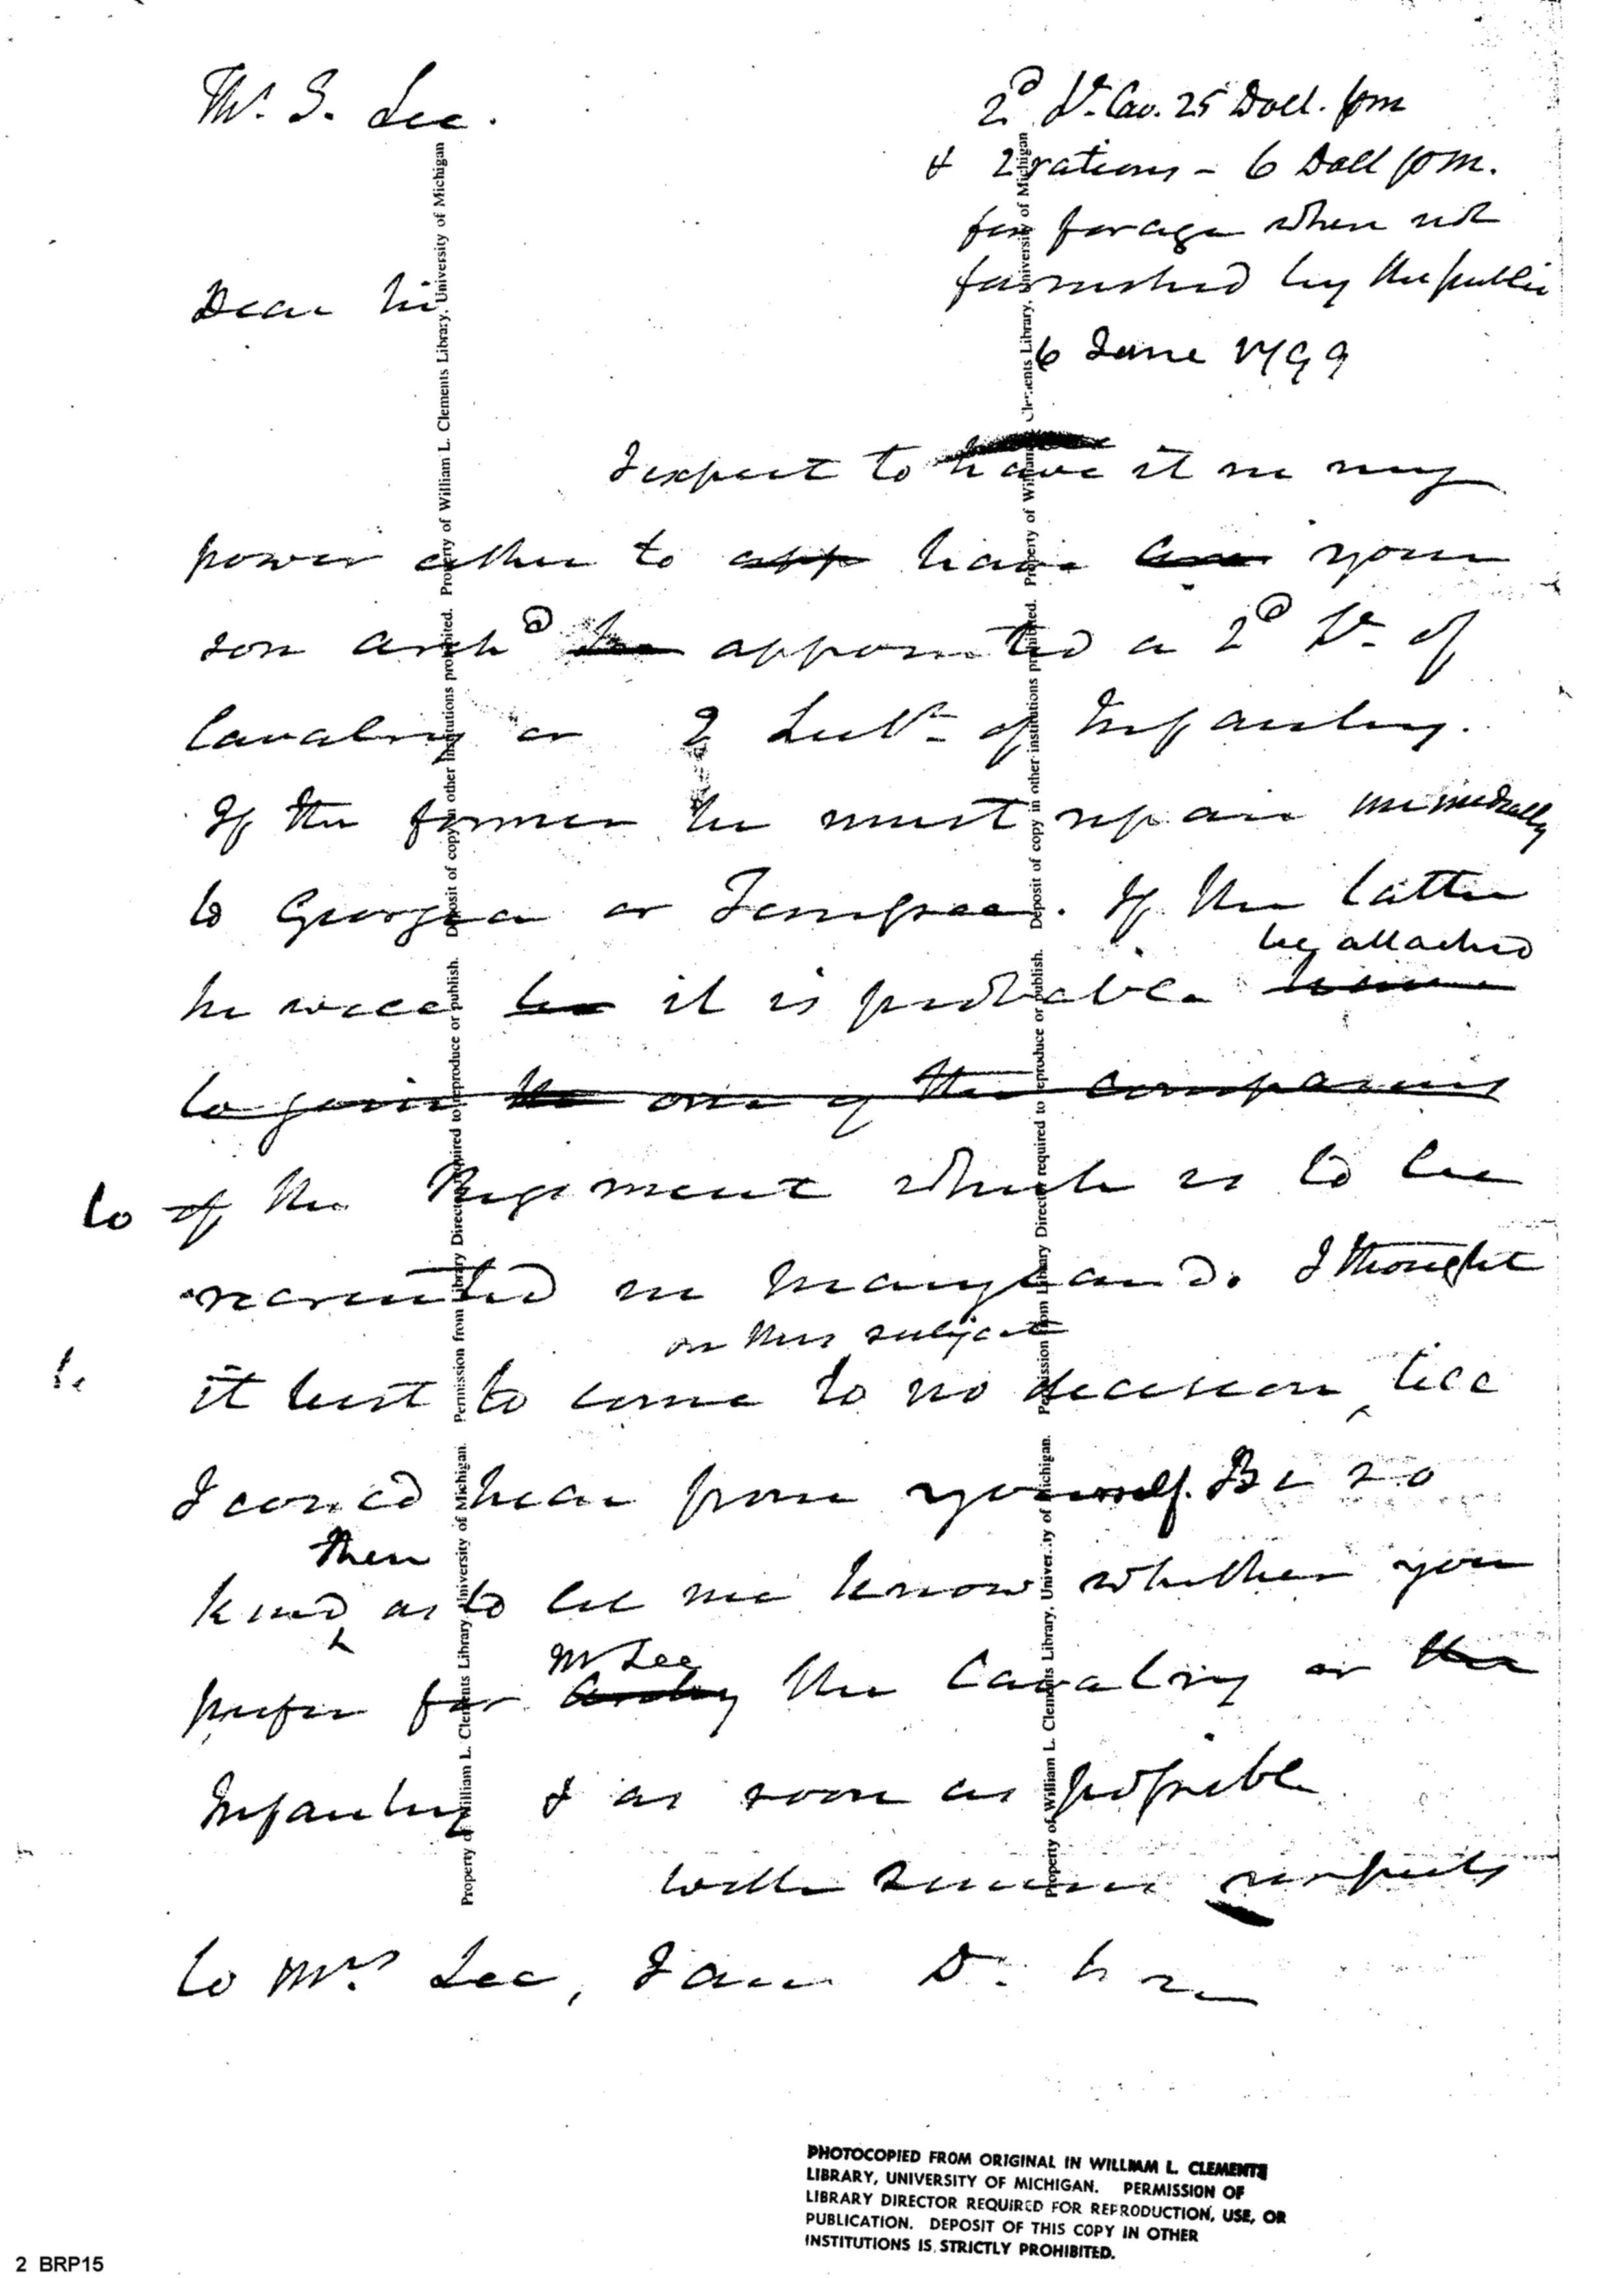 Th. S. Lee.
2d Lt. Cav. 25 Doll. pm
& 2 rations - 6 Doll pm.
for forage when not
furnished by the public
Dear Sir
6 June 1799
I expect to have it in my
power either to app have your
son archd appointed a 2d Lt. of
Cavalry or 2 Lieut. of Infantry.
If the former he must repair immediately
to Georgia or Tennessee. If the latter
be attached
he will be it is probable
to join the one of the companies
to of the Regiment which is to be
recruited in Maryland. I thought
on this subject
it best to come to no decision till
I could hear from yourself. Be so
then
kind as to let me know whether you
Mr Lee
prefer for Archy the Cavalry or the
Infantry & as soon as possible
With sincere respects
to Mrs. Lee, I am D. Sr.
Property of William L. Clements Library, University of Michigan. Permission from Library Director required to reproduce or publish. Deposit of copy in other institutions prohibited. Property of William L. Clements Library, University of Michigan
Property of William L. Clements Library, University of Michigan. Permission from Library Director required to reproduce or publish. Deposit of copy in other institutions prohibited. Property of William L. Clements Library, University of Michigan
PHOTOCOPIED FROM ORIGINAL IN WILLIAM L. CLEMENTS
LIBRARY, UNIVERSITY OF MICHIGAN. PERMISSION OF
LIBRARY DIRECTOR REQUIRED FOR REPRODUCTION, USE, OR
PUBLICATION. DEPOSIT OF THIS COPY IN OTHER
INSTITUTIONS IS STRICTLY PROHIBITED.
2 BRP15